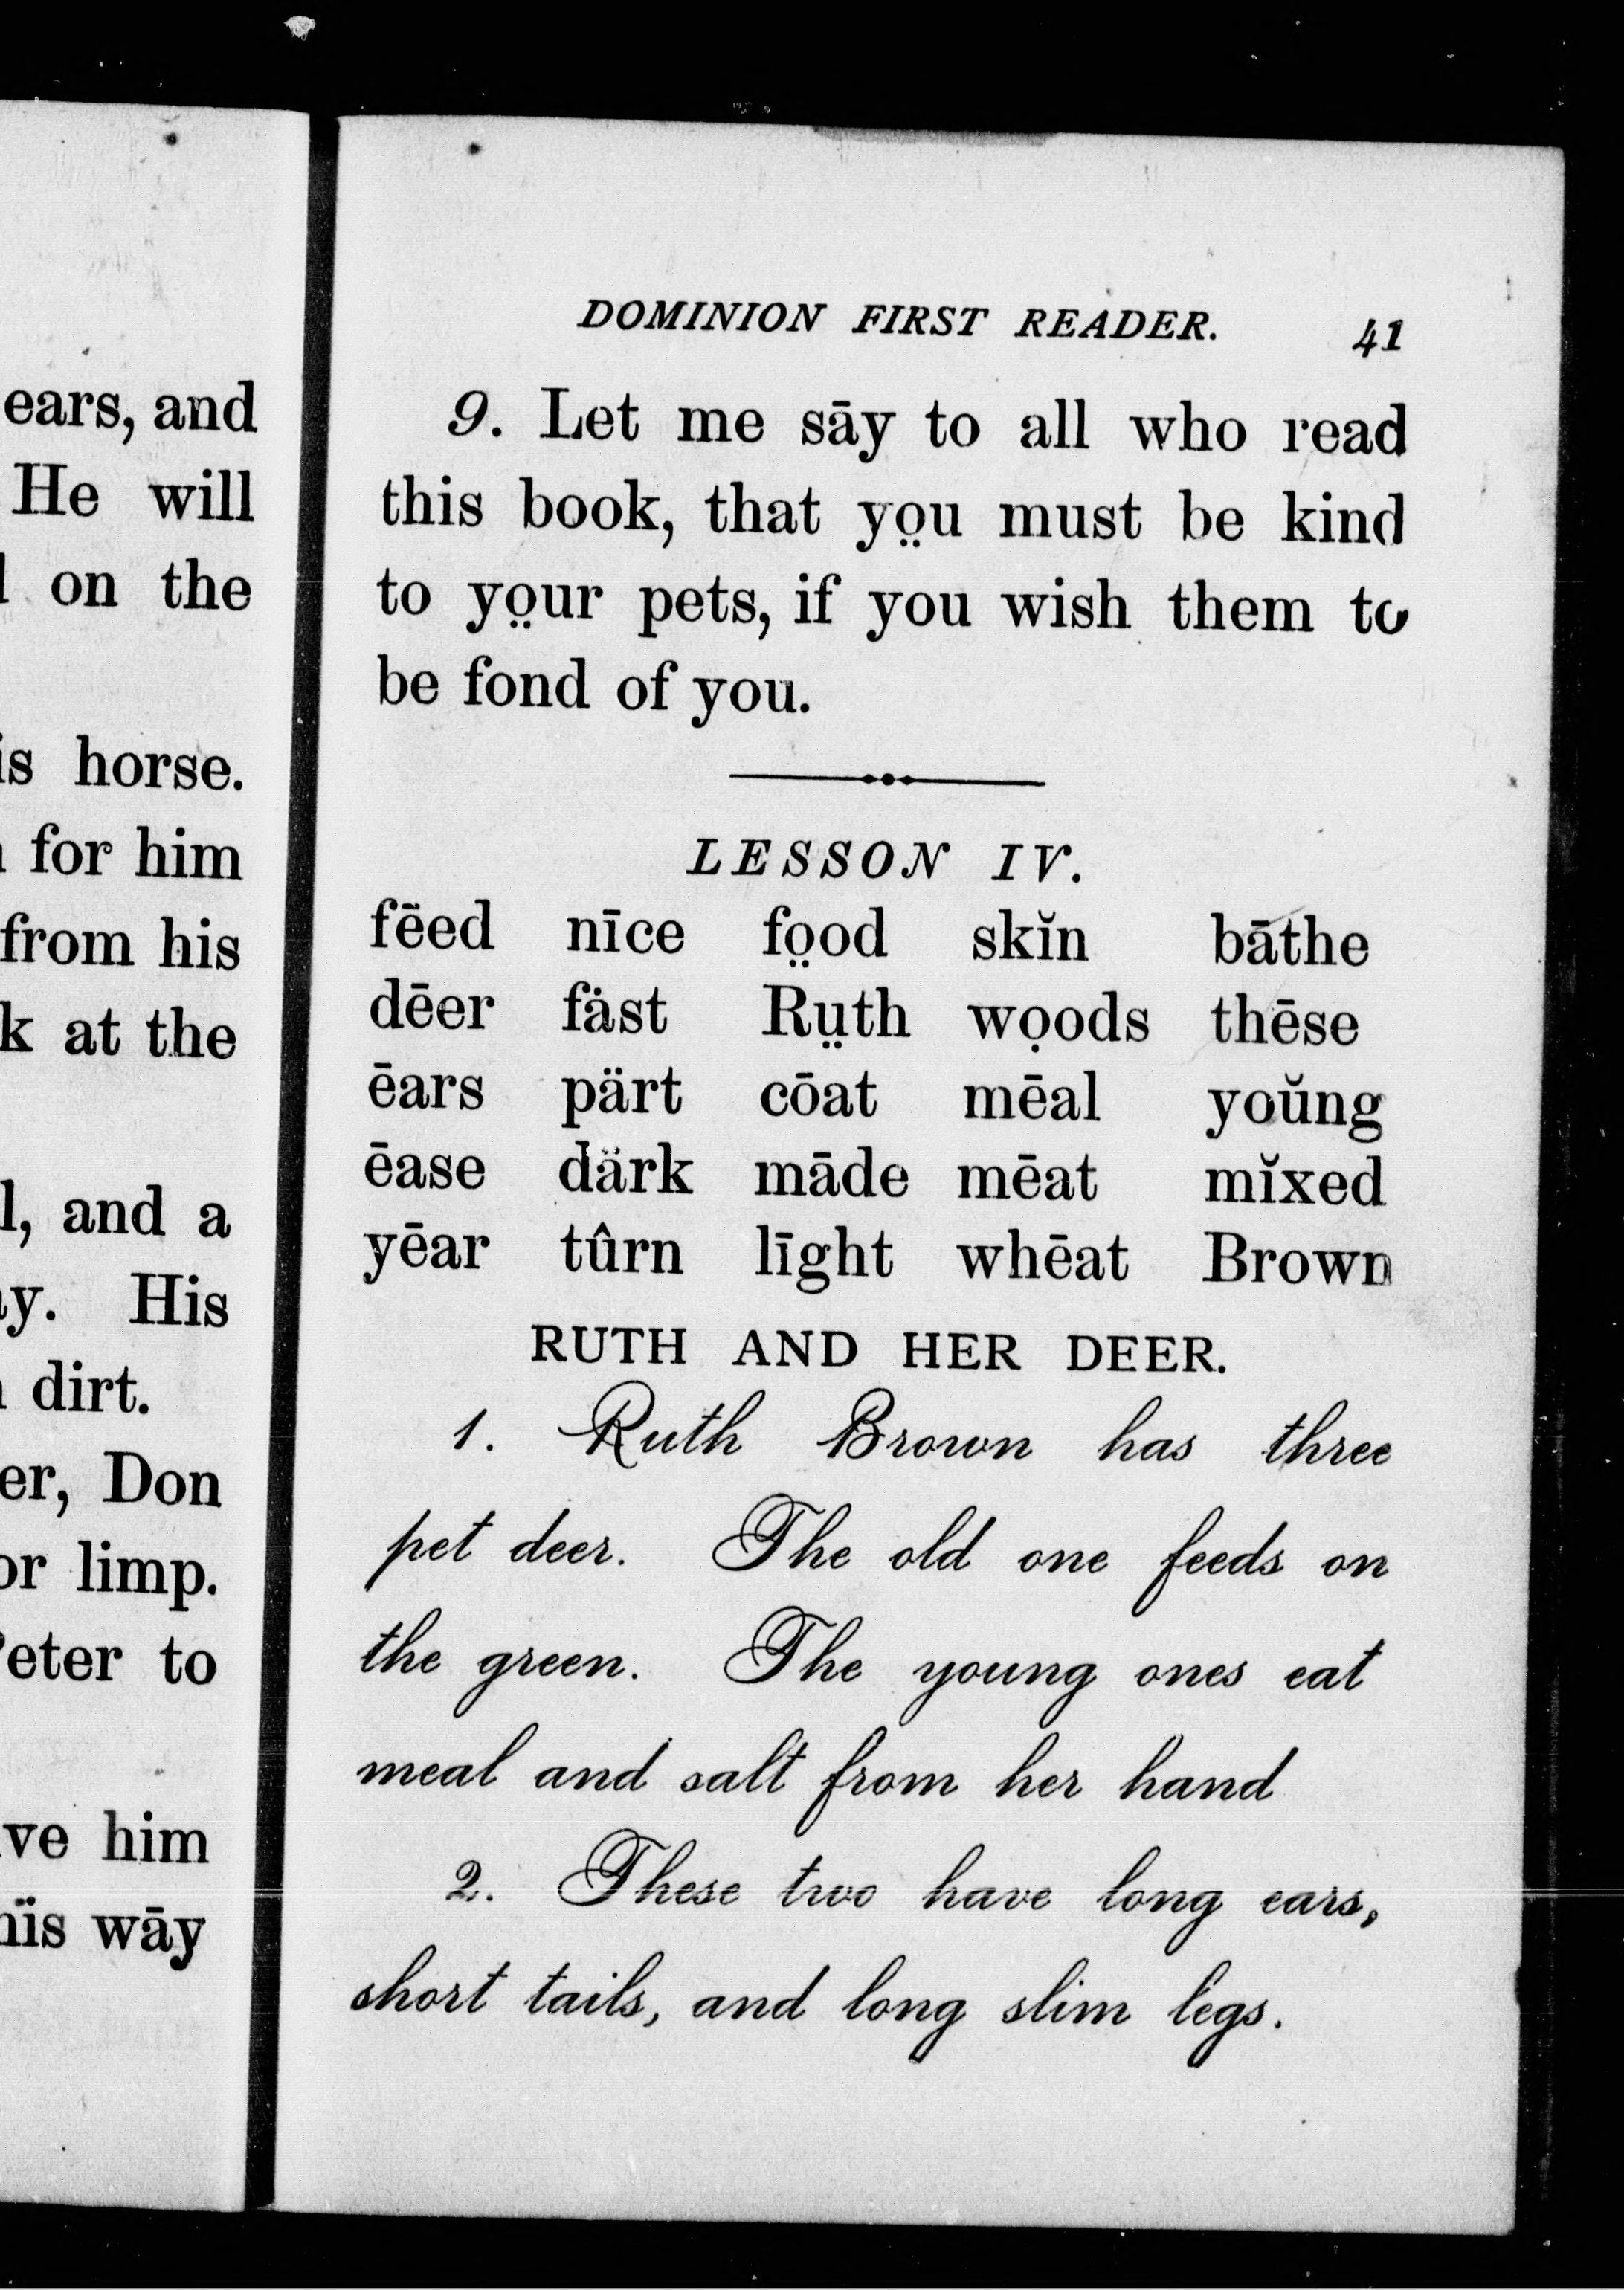 ears, and
He will
on the
is horse.
for him
from his
k at the
l, and a
ay. His
dirt.
er, Don
or limp.
Peter to
ve him
his wāy
DOMINION FIRST READER. 41
9. Let me sāy to all who read
this book, that yo̤u must be kind
to yo̤ur pets, if you wish them to
be fond of you.
LESSON IV.
fēed nīce fo̤od skĭn bāthe
dēer fäst Rṳth wọods thēse
ēars pärt cōat mēal yoŭng
ēase därk māde mēat mĭxed
yēar tûrn līght whēat Brown
RUTH AND HER DEER.
1. Ruth Brown has three
pet deer. The old one feeds on
the green. The young ones eat
meal and salt from her hand
2. These two have long ears,
short tails, and long slim legs.